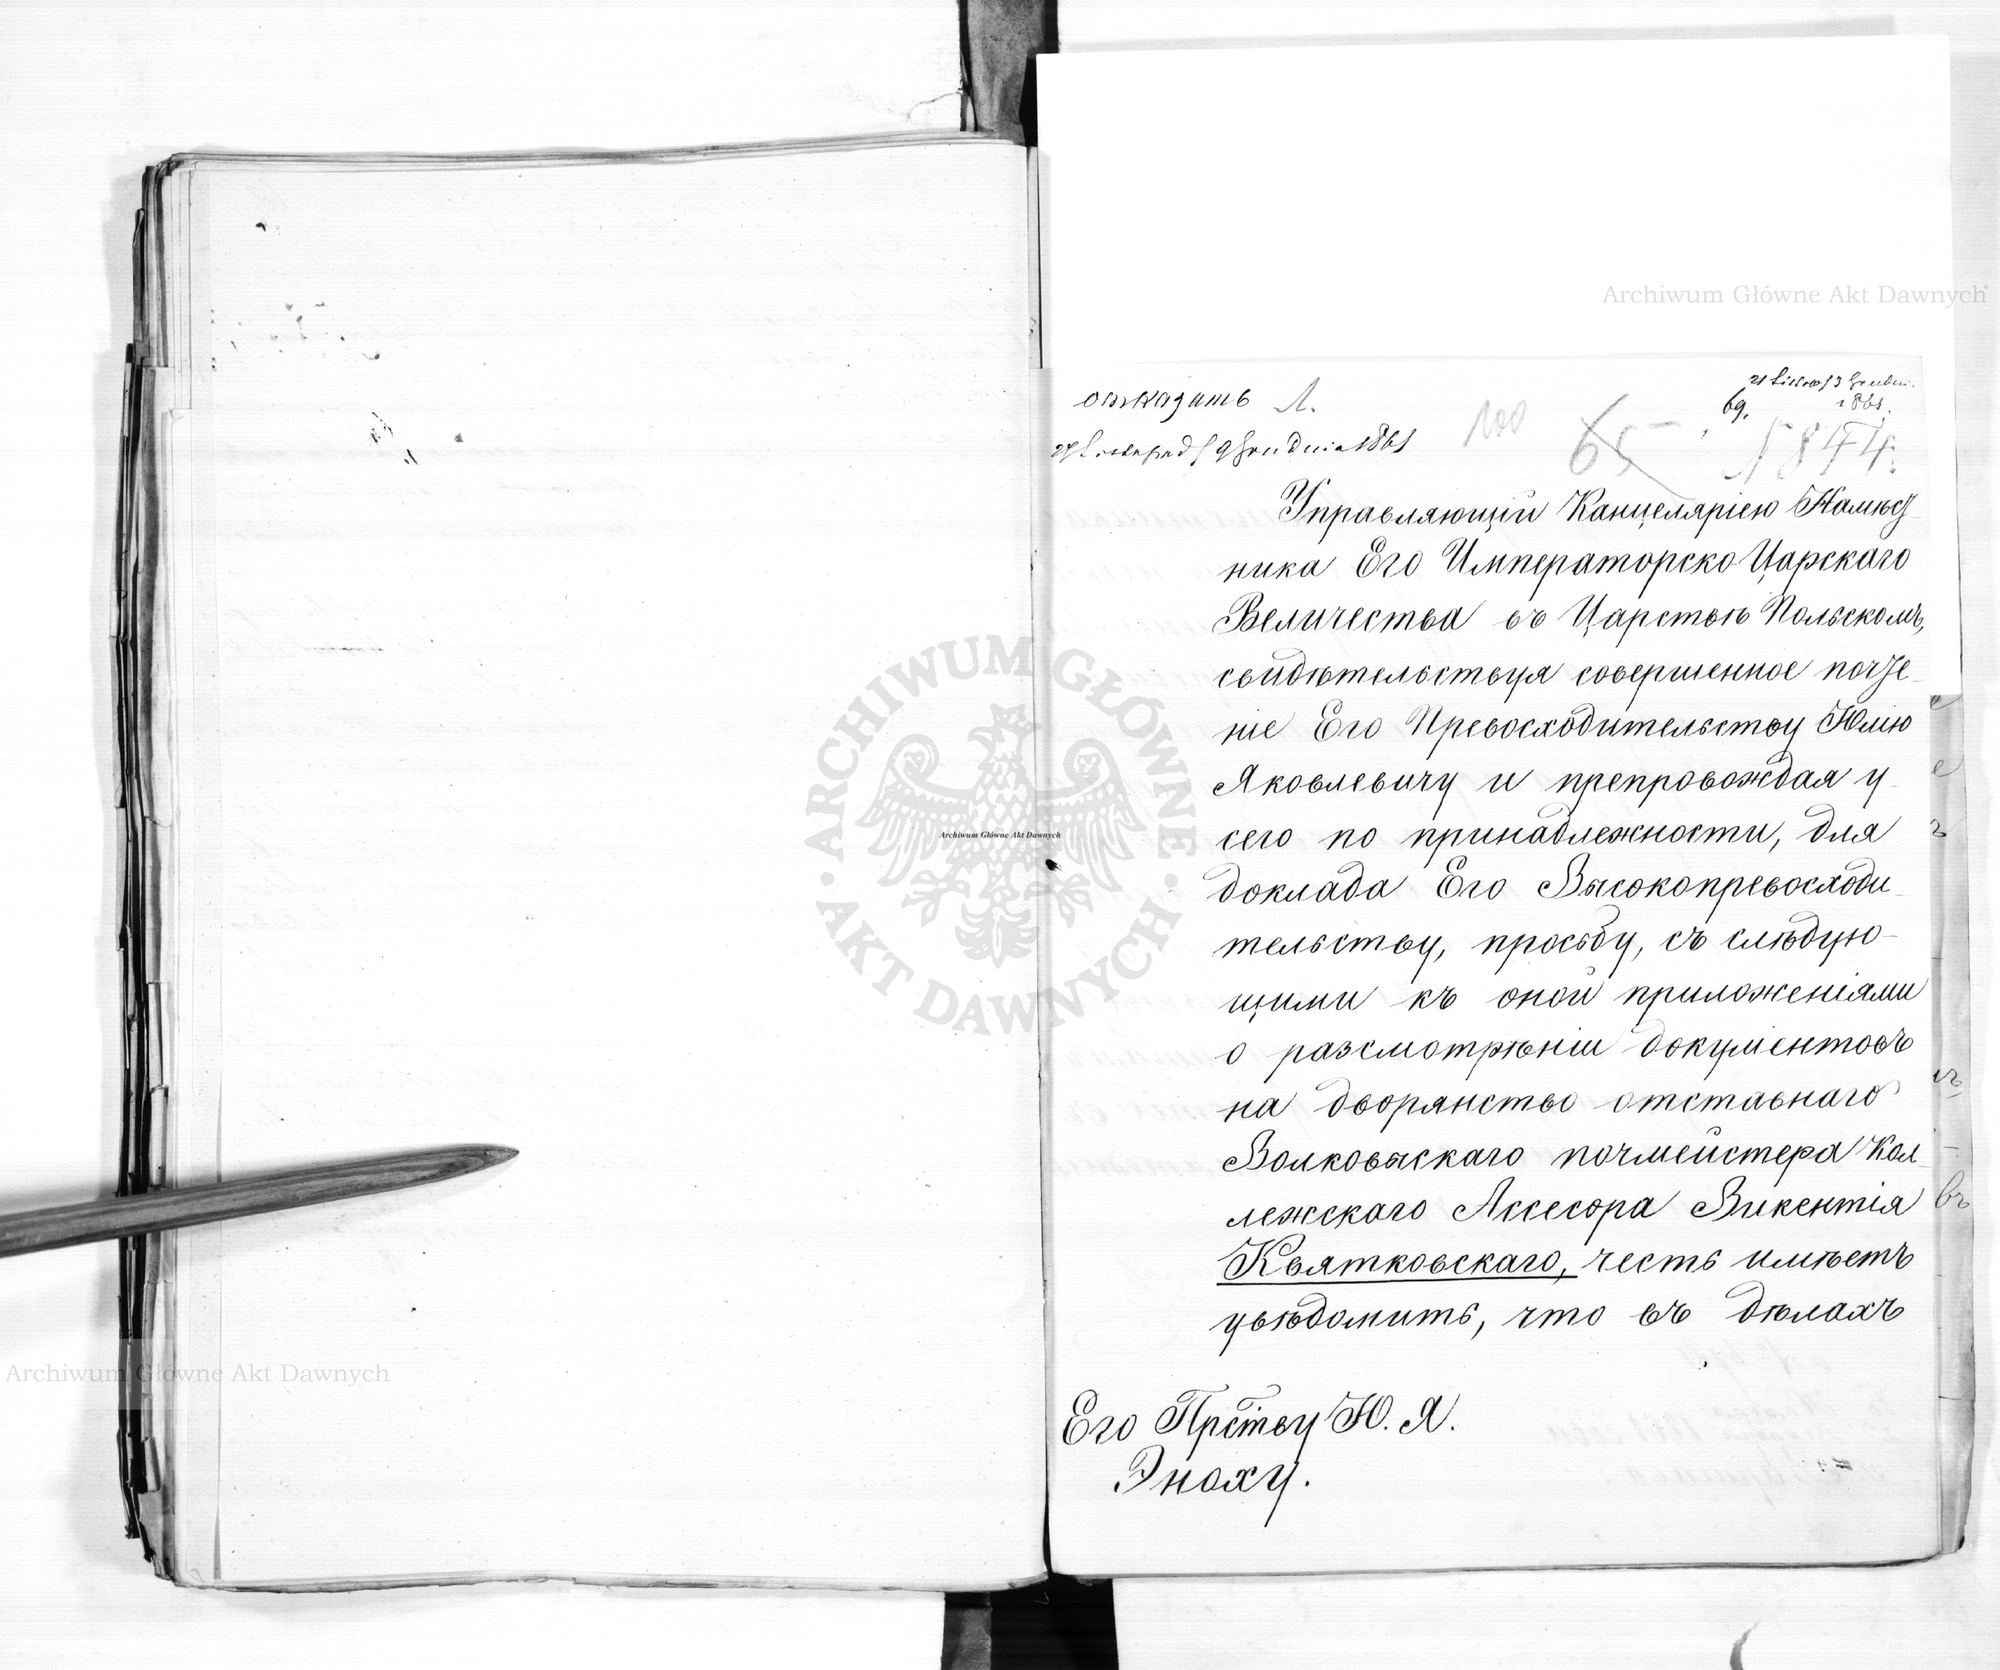 отказать Л.
27 Listopad/9 Grudnia 1861
21 Listop/3 Grudni.
1861.
69.
100
65
5844
Управляющій Канцеляріею Намѣст
ника Его Императорско Царскаго
Величества въ Царствѣ Польскомъ,
свидѣтельствуя совершенное почте
ніе Его Превосходительству Юлію
Яковлевичу и препровождая у
сего по принадлежности, для
доклада Его Высокопревосходи
тельству, просьбу, съ слѣдую-
щими къ оной приложеніями
о разсмотрѣніи документовъ
на дворянство отставнаго
Волковыскаго почмейстера Кол
лежскаго Ассесора Викентія
Квятковскаго, честь имѣетъ
увѣдомить, что въ дѣлахъ
Его Прству Ю. Я.
Эноху.
Archiwum Główne Akt Dawnych
ARCHIWUM GŁÓWNE AKT DAWNYCH
Archiwum Główne Akt Dawnych
Archiwum Główne Akt Dawnych